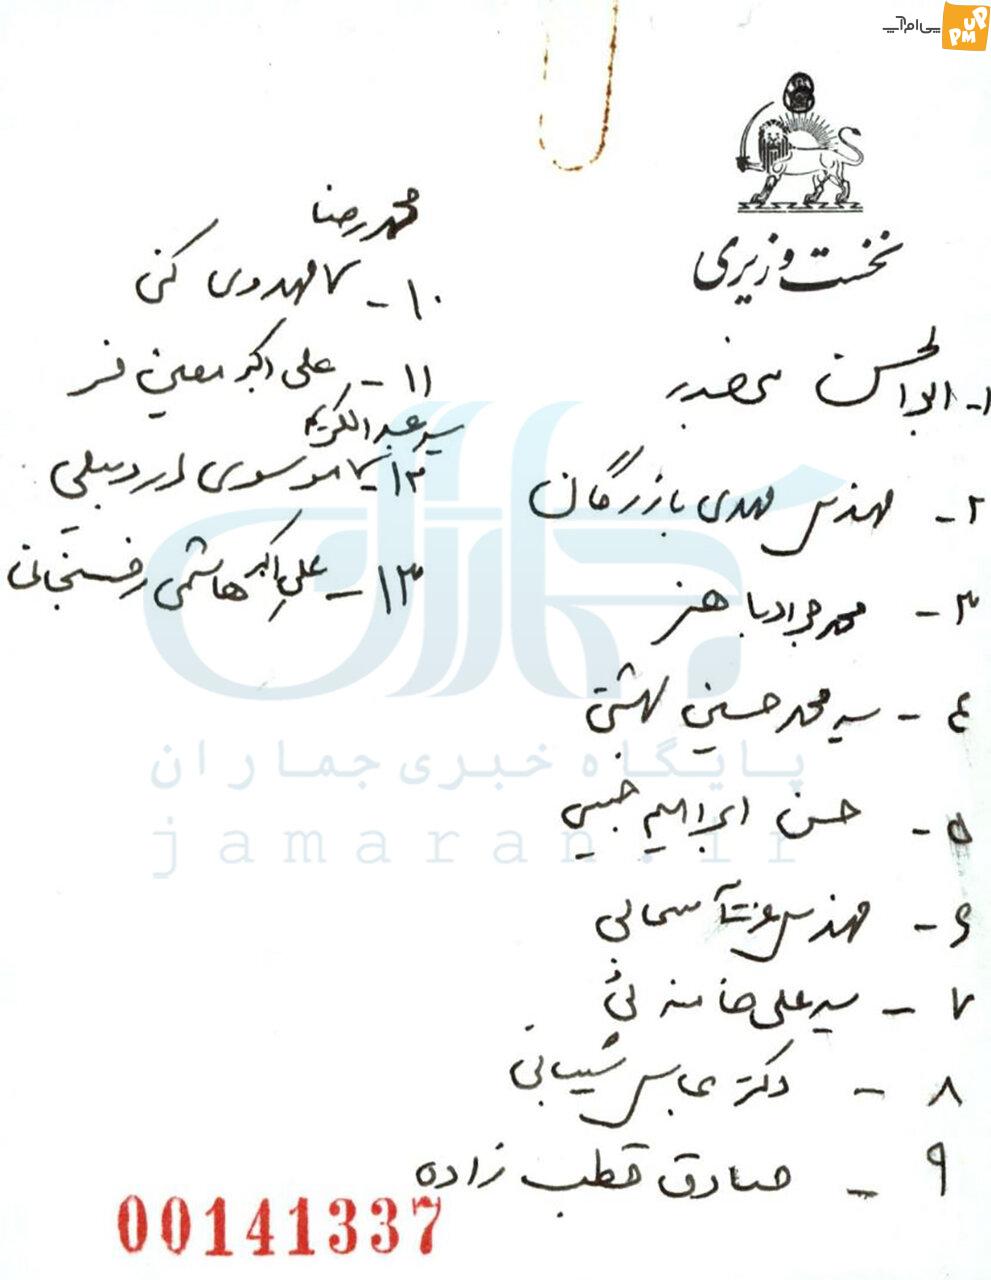 پی‌ام‌آپ
PM UP
نخست وزیری
۱- ابوالحسن بنی صدر
۲- مهندس مهدی بازرگان
۳- محمد جواد باهنر
۴- سید محمد حسینی بهشتی
۵- حسن ابراهیم حبیبی
۶- مهندس عزت‌آ سحابی
۷- سید علی خامنه ئی
۸- دکتر عباس شیبانی
۹- صادق قطب زاده
محمد رضا
۱۰- مهدوی کنی
۱۱- علی اکبر معین فر
سید عبدالکریم
۱۲- موسوی اردبیلی
۱۳- علی اکبر هاشمی رفسنجانی
جماران
پایگاه خبری جماران
jamaran.ir
00141337